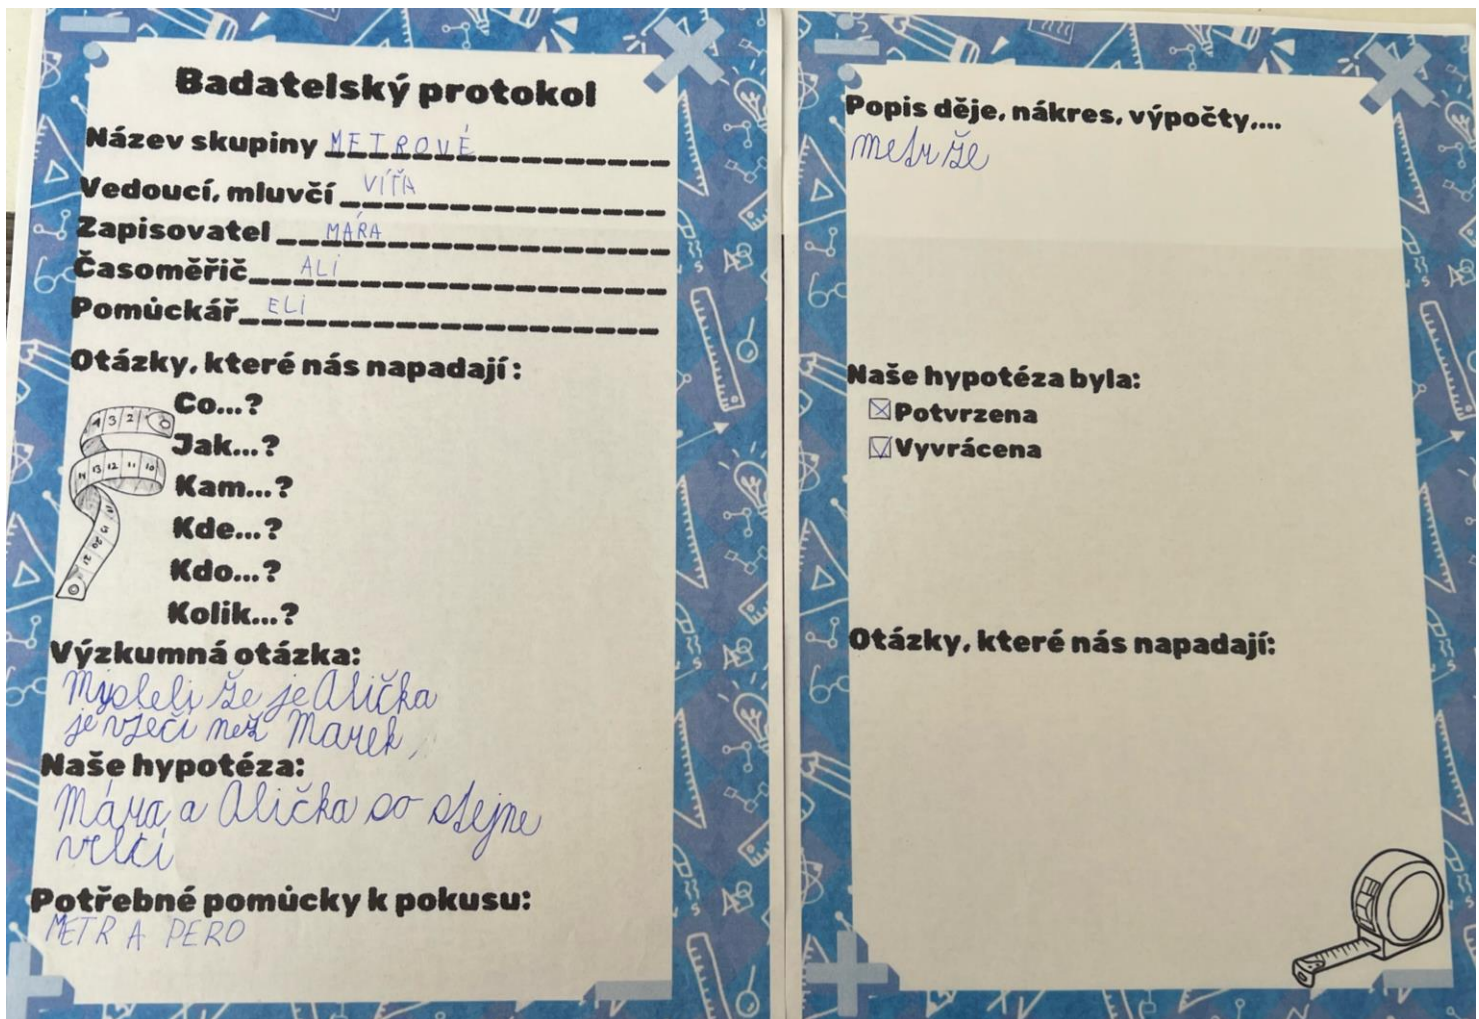 Badatelský protokol
Název skupiny METROVÉ
Vedoucí, mluvčí VÍŤA
Zapisovatel MÁRA
Časoměřič ALI
Pomůckář ELI
Otázky, které nás napadají :
Co...?
Jak...?
Kam...?
Kde...?
Kdo...?
Kolik...?
Výzkumná otázka:
Mysleli že je Alička
je vječí než Marek,
Naše hypotéza:
Mára a Alička so stejne
velcí
Potřebné pomůcky k pokusu:
METR A PERO
Popis děje, nákres, výpočty,...
metr že
Naše hypotéza byla:
Potvrzena
Vyvrácena
Otázky, které nás napadají: